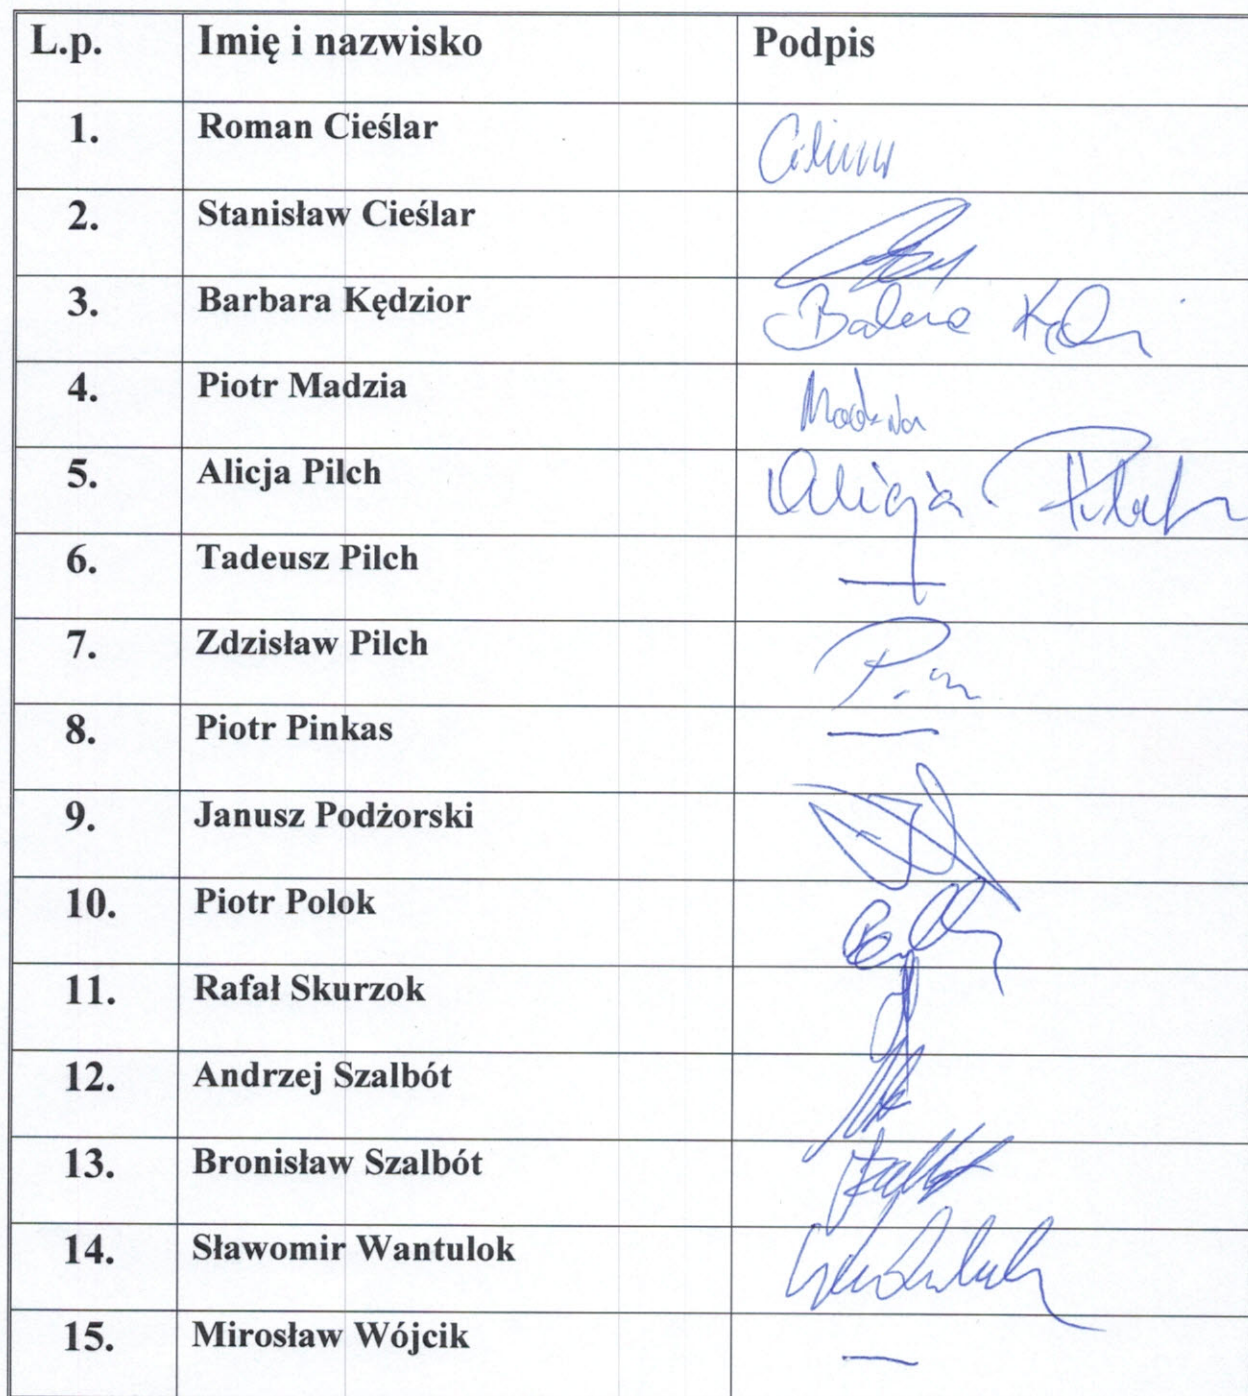 L.p. Imię i nazwisko Podpis
1. Roman Cieślar
2. Stanisław Cieślar
3. Barbara Kędzior
4. Piotr Madzia
5. Alicja Pilch Alicja Pilch
6. Tadeusz Pilch —
7. Zdzisław Pilch
8. Piotr Pinkas —
9. Janusz Podżorski
10. Piotr Polok
11. Rafał Skurzok
12. Andrzej Szalbót
13. Bronisław Szalbót
14. Sławomir Wantulok
15. Mirosław Wójcik —